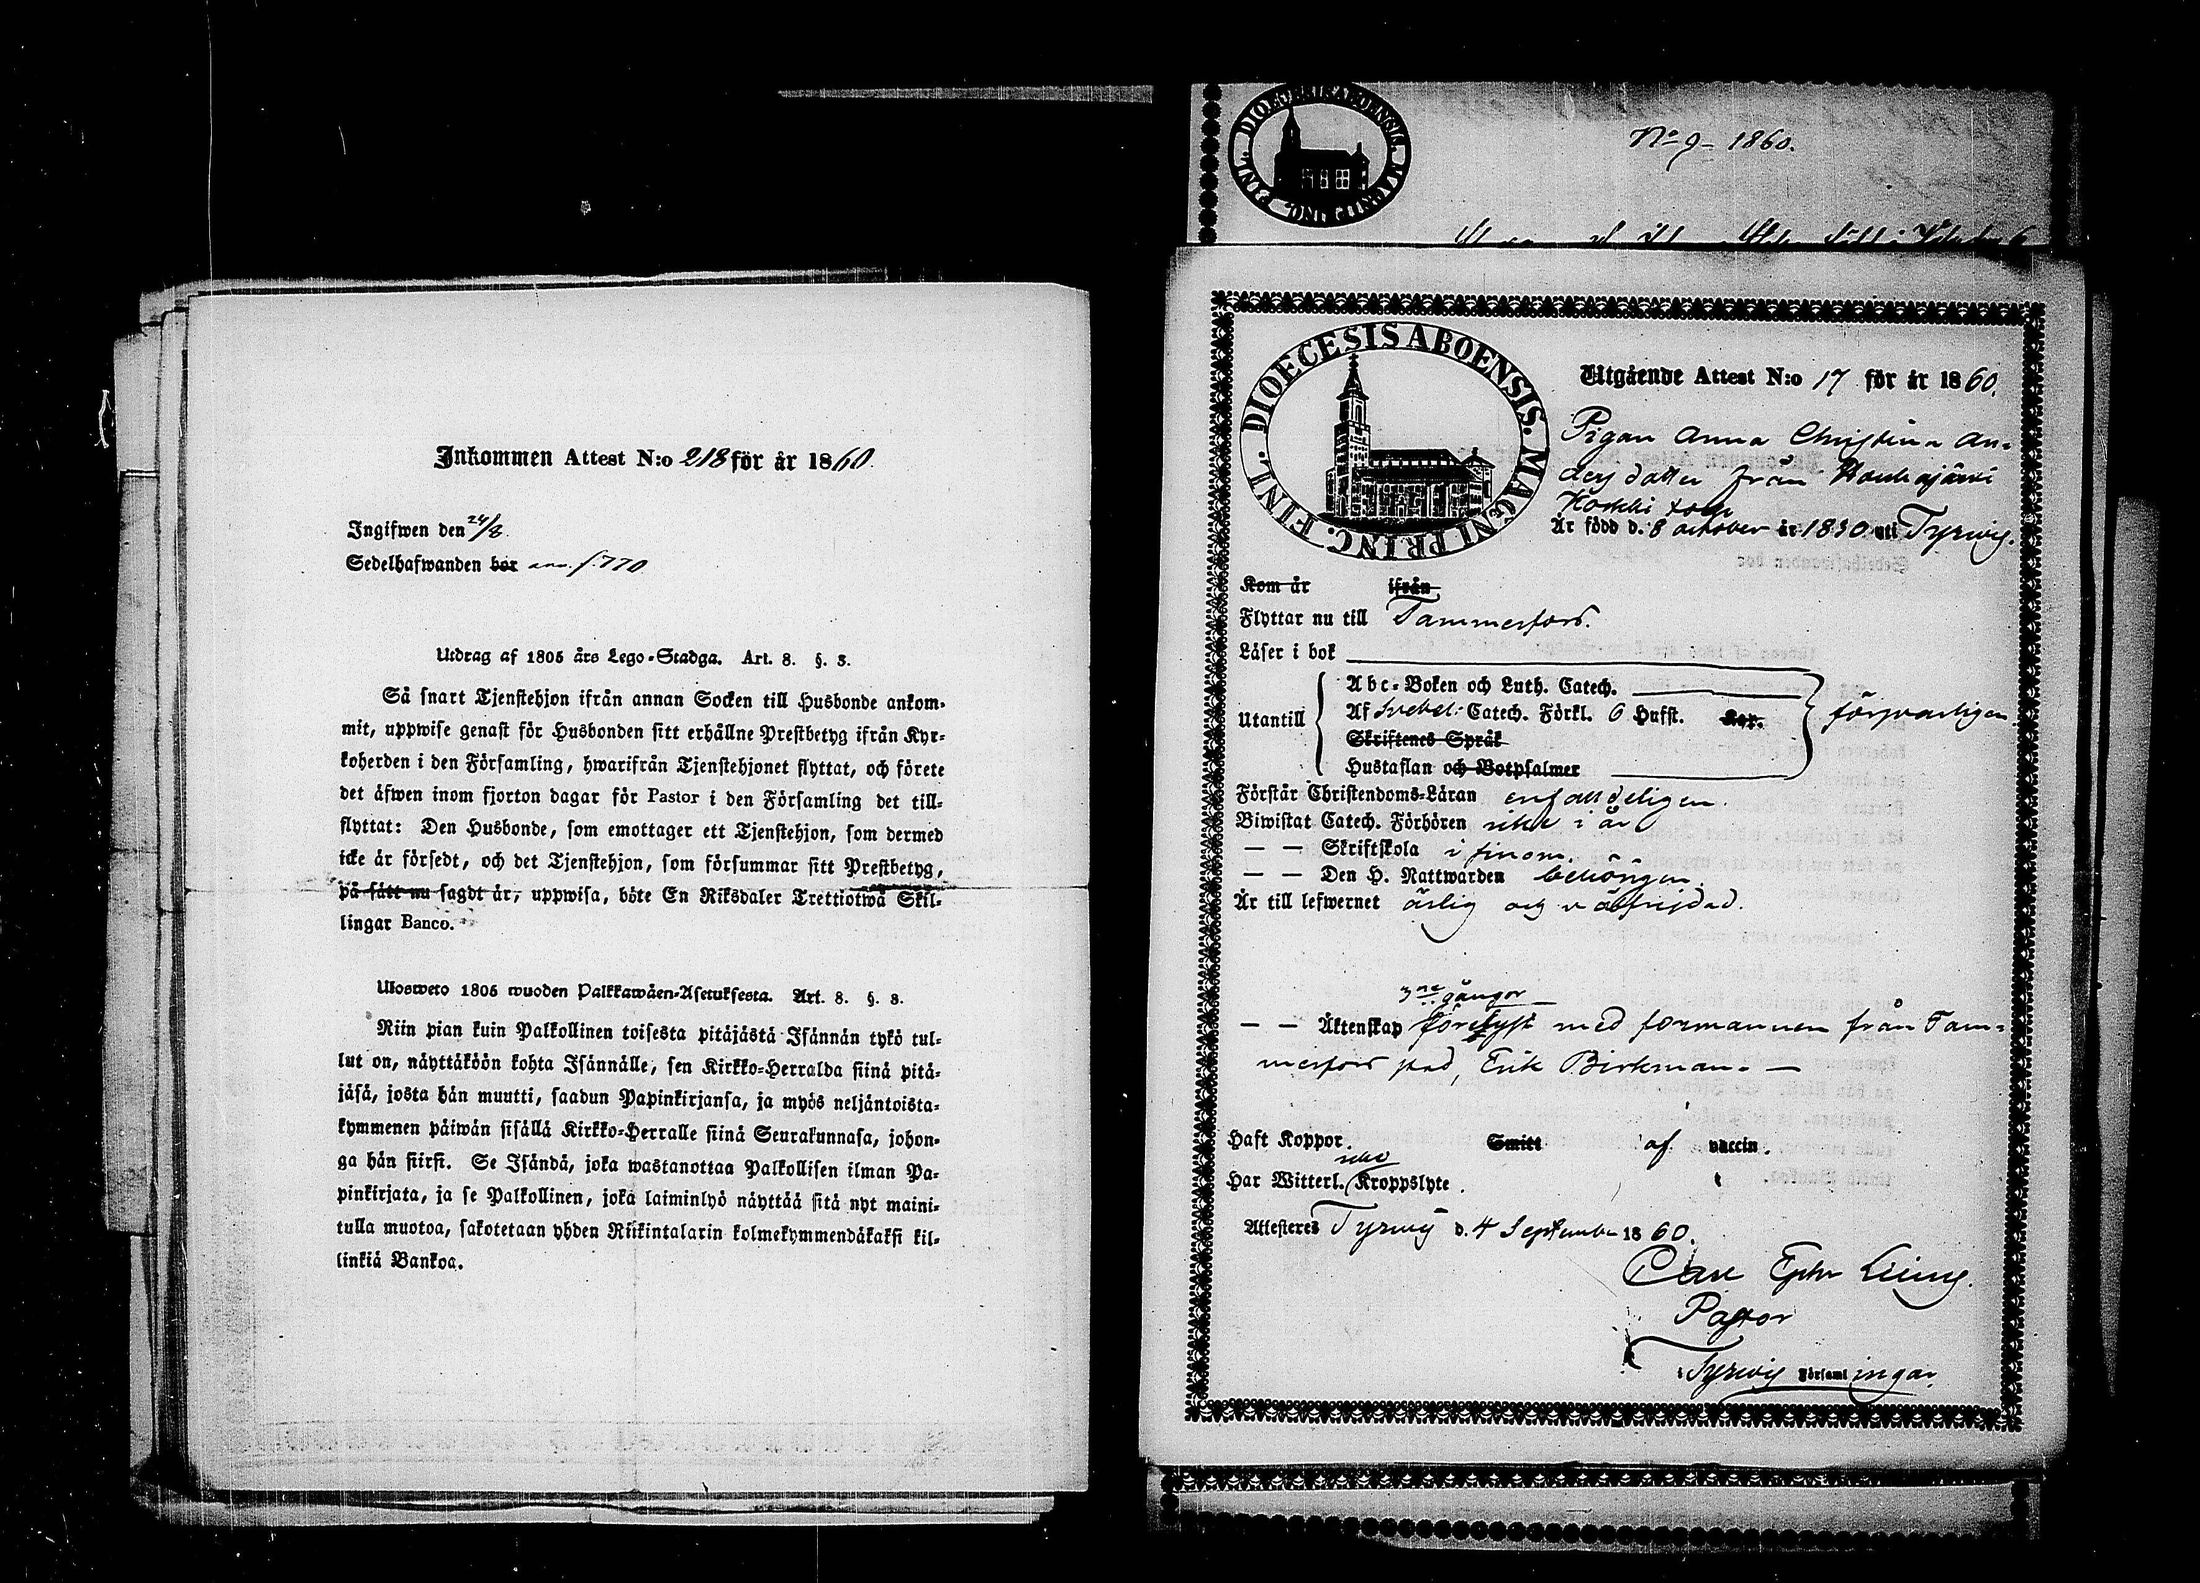 Inkommen Attest N:o 218 för år 1860.
Ingifwen den 24/8.
Sedelhafwanden bor ann. f. 770
Utdrag af 1805 års Lego-Stadga. Art. 8. §. 3.
Så snart Tjenstehjon ifrån annan Socken till Husbonde ankom-
mit, uppwise genast för Husbonden sitt erhållne Prestbetyg ifrån Kyr-
koherden i den Församling, hwarifrån Tjenstehjonet flyttat, och förete
det äfwen inom fjorton dagar för Pastor i den Församling det till-
flyttat: Den Husbonde, som emottager ett Tjenstehjon, som dermed
icke är försedt, och det Tjenstehjon, som försummar sitt Prestbetyg,
på sätt nu sagdt är, uppwisa, böte En Riksdaler Trettiotwå Skil-
lingar Banco.
Ulosweto 1805 wuoden Palkkawäen-Asetuksesta. Art. 8. §. 3.
Niin pian kuin Palkollinen toisesta pitäjästä Isännän tykö tul-
lut on, näyttäköön kohta Isännälle, sen Kirkko-Herralda siinä pitä-
jäsä, josta hän muutti, saadun Papinkirjansa, ja myös neljäntoista-
kymmenen päiwän sisällä Kirkko-Herralle siinä Seurakunnasa, johon-
ga hän siirsi. Se Isändä, joka wastanottaa Palkollisen ilman Pa-
pinkirjata, ja se Palkollinen, joka laiminlyö näyttää sitä nyt maini-
tulla muotoa, sakotetaan yhden Riikintalarin kolmekymmendäkaksi kil-
linkiä Bankoa.
No 9 - 1860.
DIOECESIS ABOENSIS. MAGNI PRINC. FINL.
Utgående Attest N:o 17 för år 1860.
Pigan Anna Christina An-
ders dotter från Houhajärvi
Horkki
Är född d. 8 october år 1830 uti Tyrwis.
Kom år ifrån
Flyttar nu till Tammerfors.
Läser i bok
Abc-Boken och Luth. Catech.
Utantill Af Svebel: Catech. Förkl. 6 Hufst. Kap. försvarligen
Skriftenes Språk
Hustaflan och Botpsalmer
Förstår Christendoms-Läran enfaldeligen.
Biwistat Catech. Förhören icke i år
— — Skriftskola
— — Den H. Nattwarden behörigen.
Är till lefwernet ärlig och välfrejdad.
3ne gångor
— — Äktenskap förelyst med formannen från Tam-
merfors stad, Erik Birkman. —
Haft Koppor Smitt af vaccin.
icke
Har Witterl. Kroppslyte.
Attesteres Tyrwis d. 4 September 1860.
Carl
Pastor
i Tyrwis Församlingar.